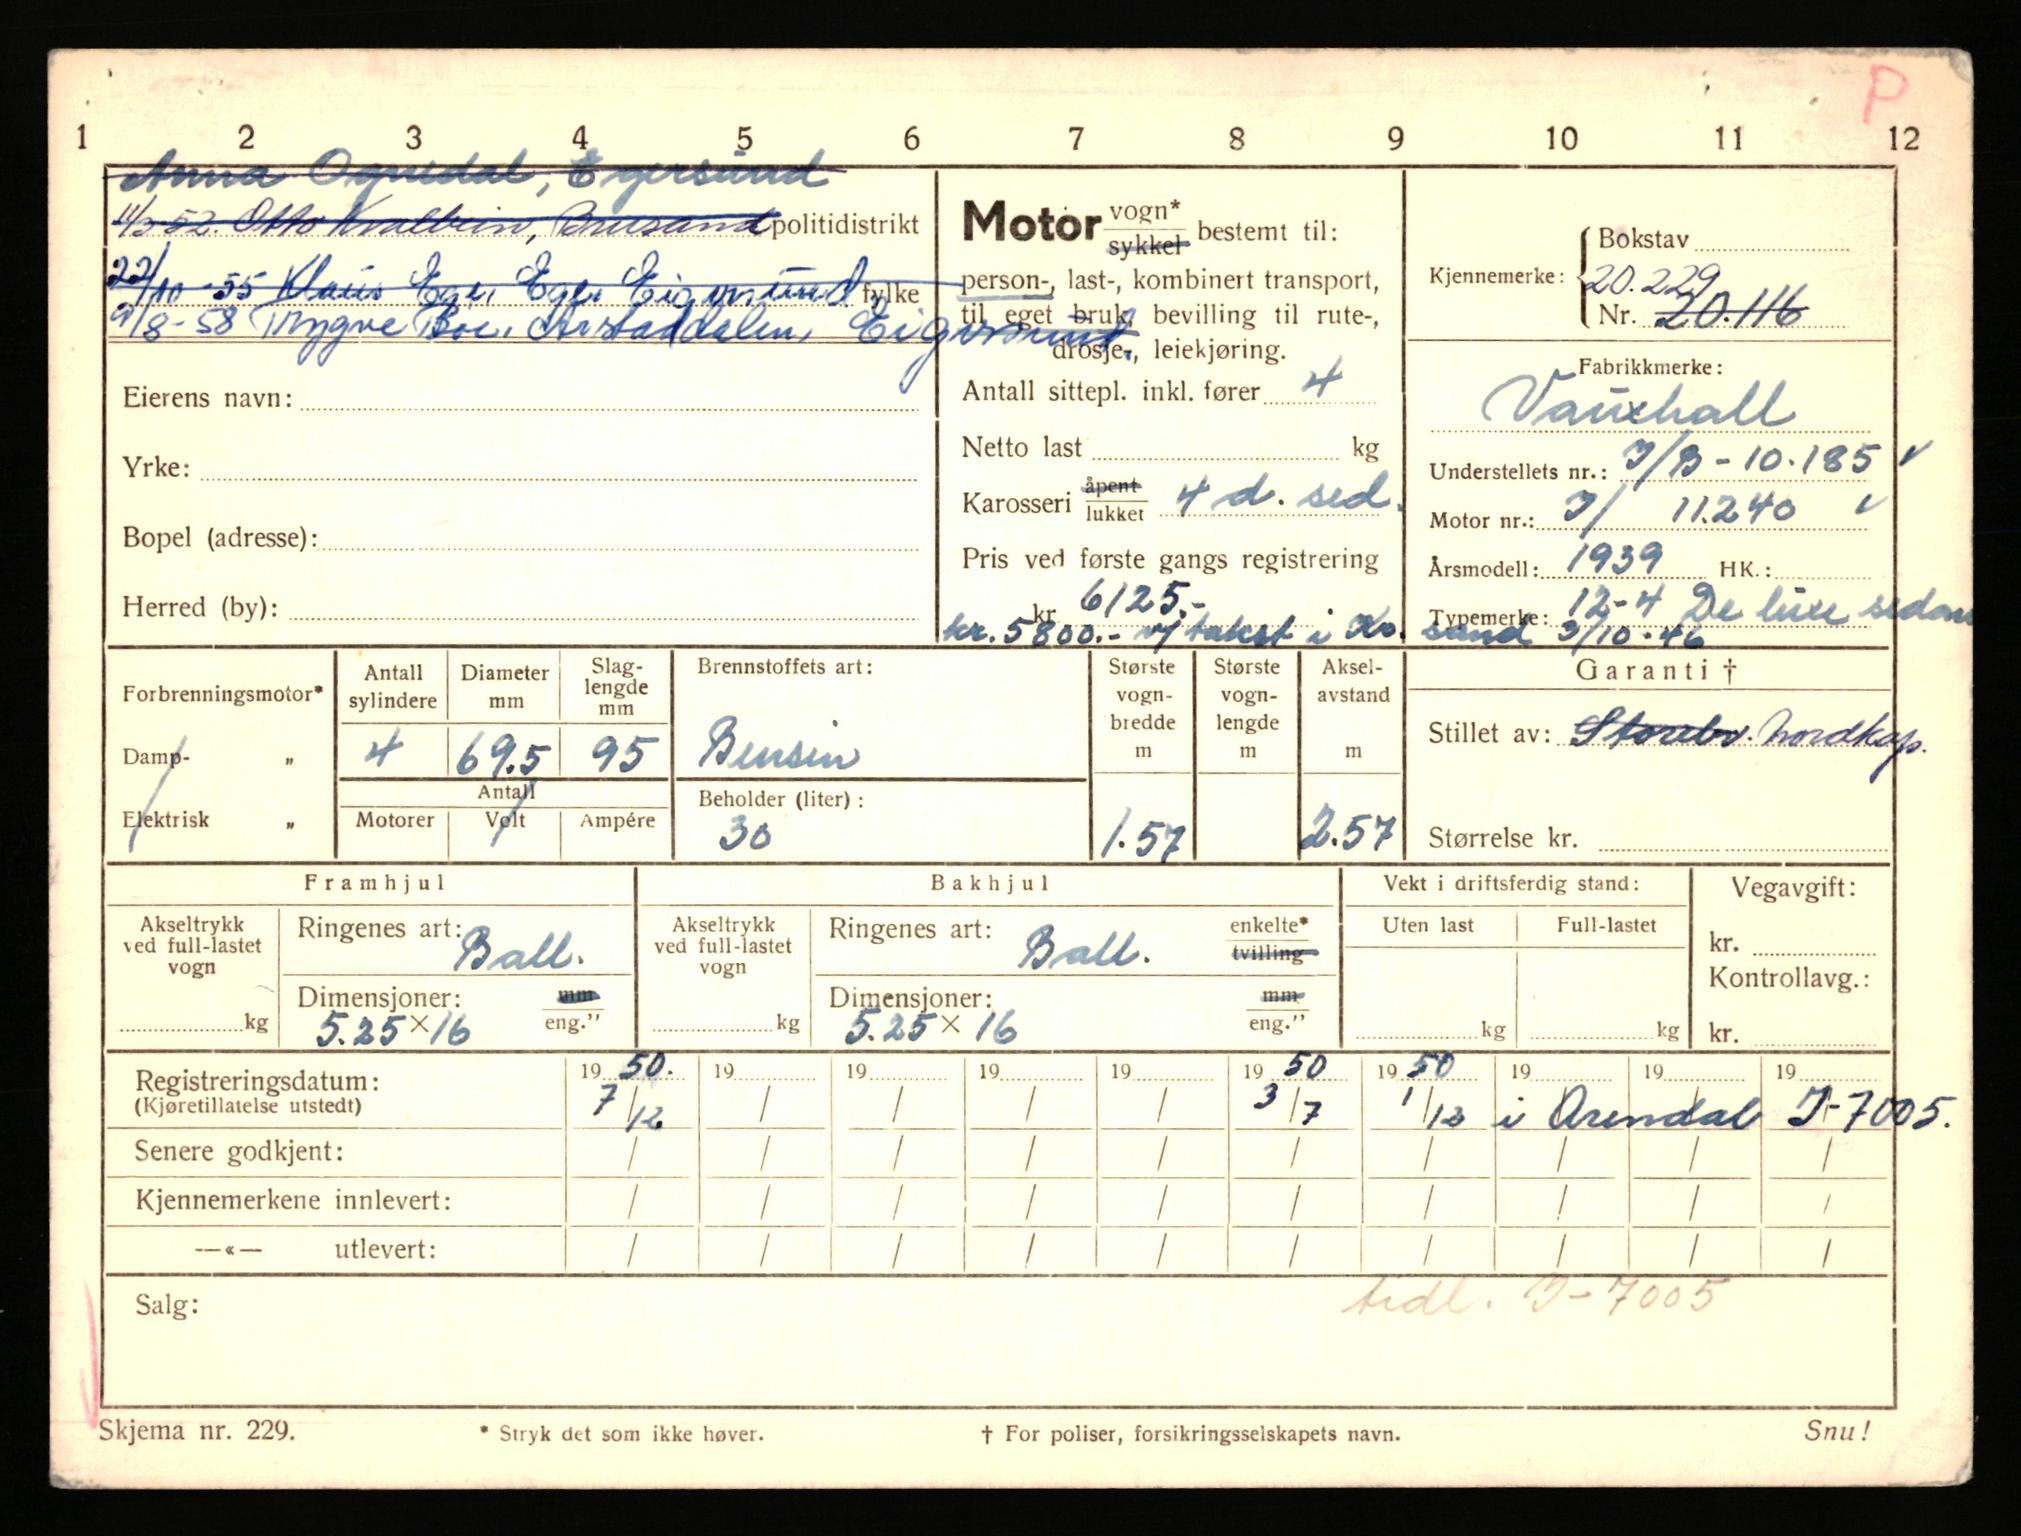 P
1 2 3 4 5 6 7 8 9 10 11 12
Anna Ognedal, Egersund
11/3-52. Otto Kvalbein, Brusand politidistrikt
22/10-55 Klaus Ege, Ege, Eigersund fylke
9/8-58 Trygve Boe, Årstaddalen, Eigersund
Eierens navn:
Yrke:
Bopel (adresse):
Herred (by):
Motor vogn* sykkel bestemt til:
person-, last-, kombinert transport,
til eget bruk, bevilling til rute-,
drosje-, leiekjøring.
Antall sittepl. inkl. fører 4
Netto last kg
Karosseri åpent lukket 4 d. sed.
Pris ved første gangs registrering
kr. 6125.-
kr. 5800.- v/ takst i Kr. sand 3/10-46
Bokstav
Kjennemerke: 20.229
Nr. 20.116
Fabrikkmerke:
Vauxhall
Understellets nr.: I/B-10.185 ✓
Motor nr.: I/ 11.240 ✓
Årsmodell: 1939 HK.:
Typemerke: 12-4 De luxe sedan
Forbrenningsmotor*
Damp- „
Elektrisk „
Antall sylindere 4
Diameter mm 69.5
Slag-lengde mm 95
Antall
Motorer Volt Ampére
Brennstoffets art:
Bensin
Beholder (liter):
30
Største vogn-bredde m 1.57
Største vogn-lengde m
Aksel-avstand m 2.57
Garanti †
Stillet av: Storebr. Nordkap.
Størrelse kr.
Framhjul
Akseltrykk ved full-lastet vogn kg
Ringenes art: Ball.
Dimensjoner: mm eng."
5.25 × 16
Bakhjul
Akseltrykk ved full-lastet vogn kg
Ringenes art: Ball. enkelte* tvilling
Dimensjoner: mm eng."
5.25 × 16
Vekt i driftsferdig stand:
Uten last Full-lastet
kg kg
Vegavgift:
kr.
Kontrollavg.:
kr.
Registreringsdatum: 19 50. 19 19 19 19 19 50 19 50 19 19 19
(Kjøretillatelse utstedt) 7/12 / / / / 3/7 1/12 i Arendal I-7005.
Senere godkjent: / / / / / / / / / /
Kjennemerkene innlevert: / / / / / / / / / /
—«— utlevert: / / / / / / / / / /
Salg: tidl. I-7005
Skjema nr. 229. * Stryk det som ikke høver. † For poliser, forsikringsselskapets navn. Snu!